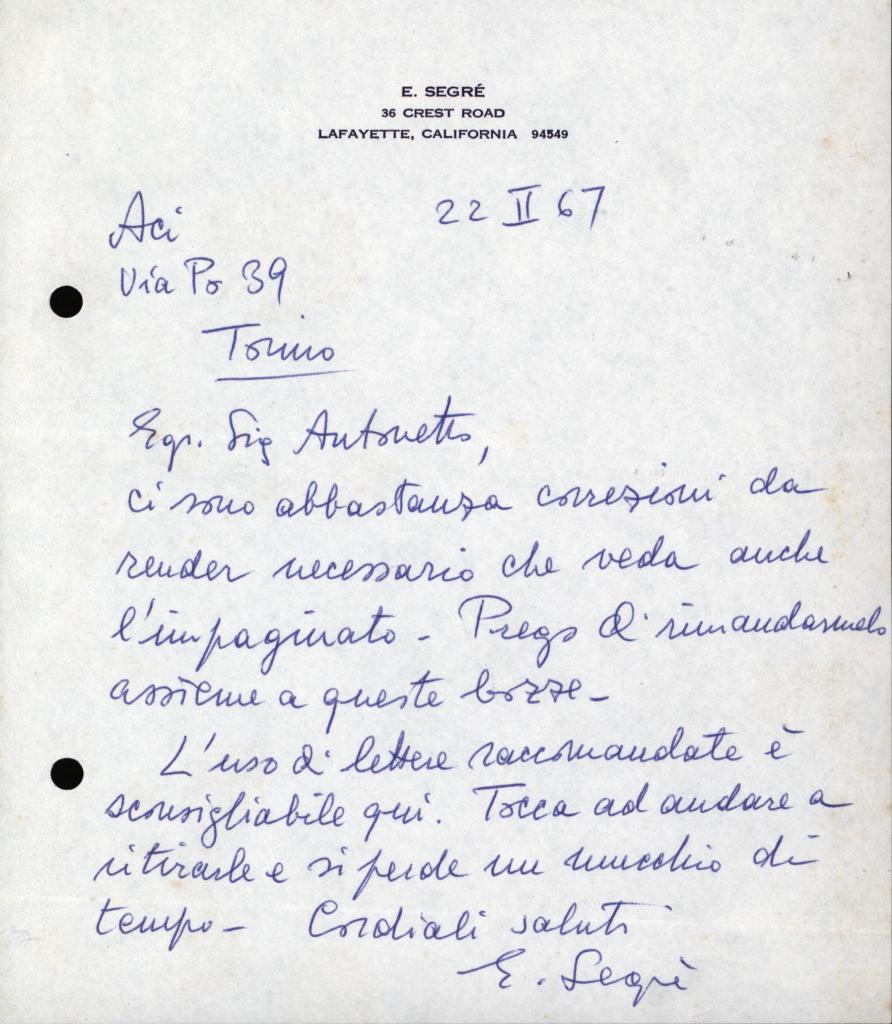 E. SEGRÉ
36 CREST ROAD
LAFAYETTE, CALIFORNIA 94549
22 II 67
Aci
Via Po 39
Torino
Egr. Sig Antonetto,
ci sono abbastanza correzioni da
render necessario che veda anche
l'impaginato - Prego di rimandarmelo
assieme a queste bozze -
L'uso di lettere raccomandate è
sconsigliabile qui. Tocca ad andare a
ritirarle e si perde un mucchio di
tempo - Cordiali saluti
E. Segrè